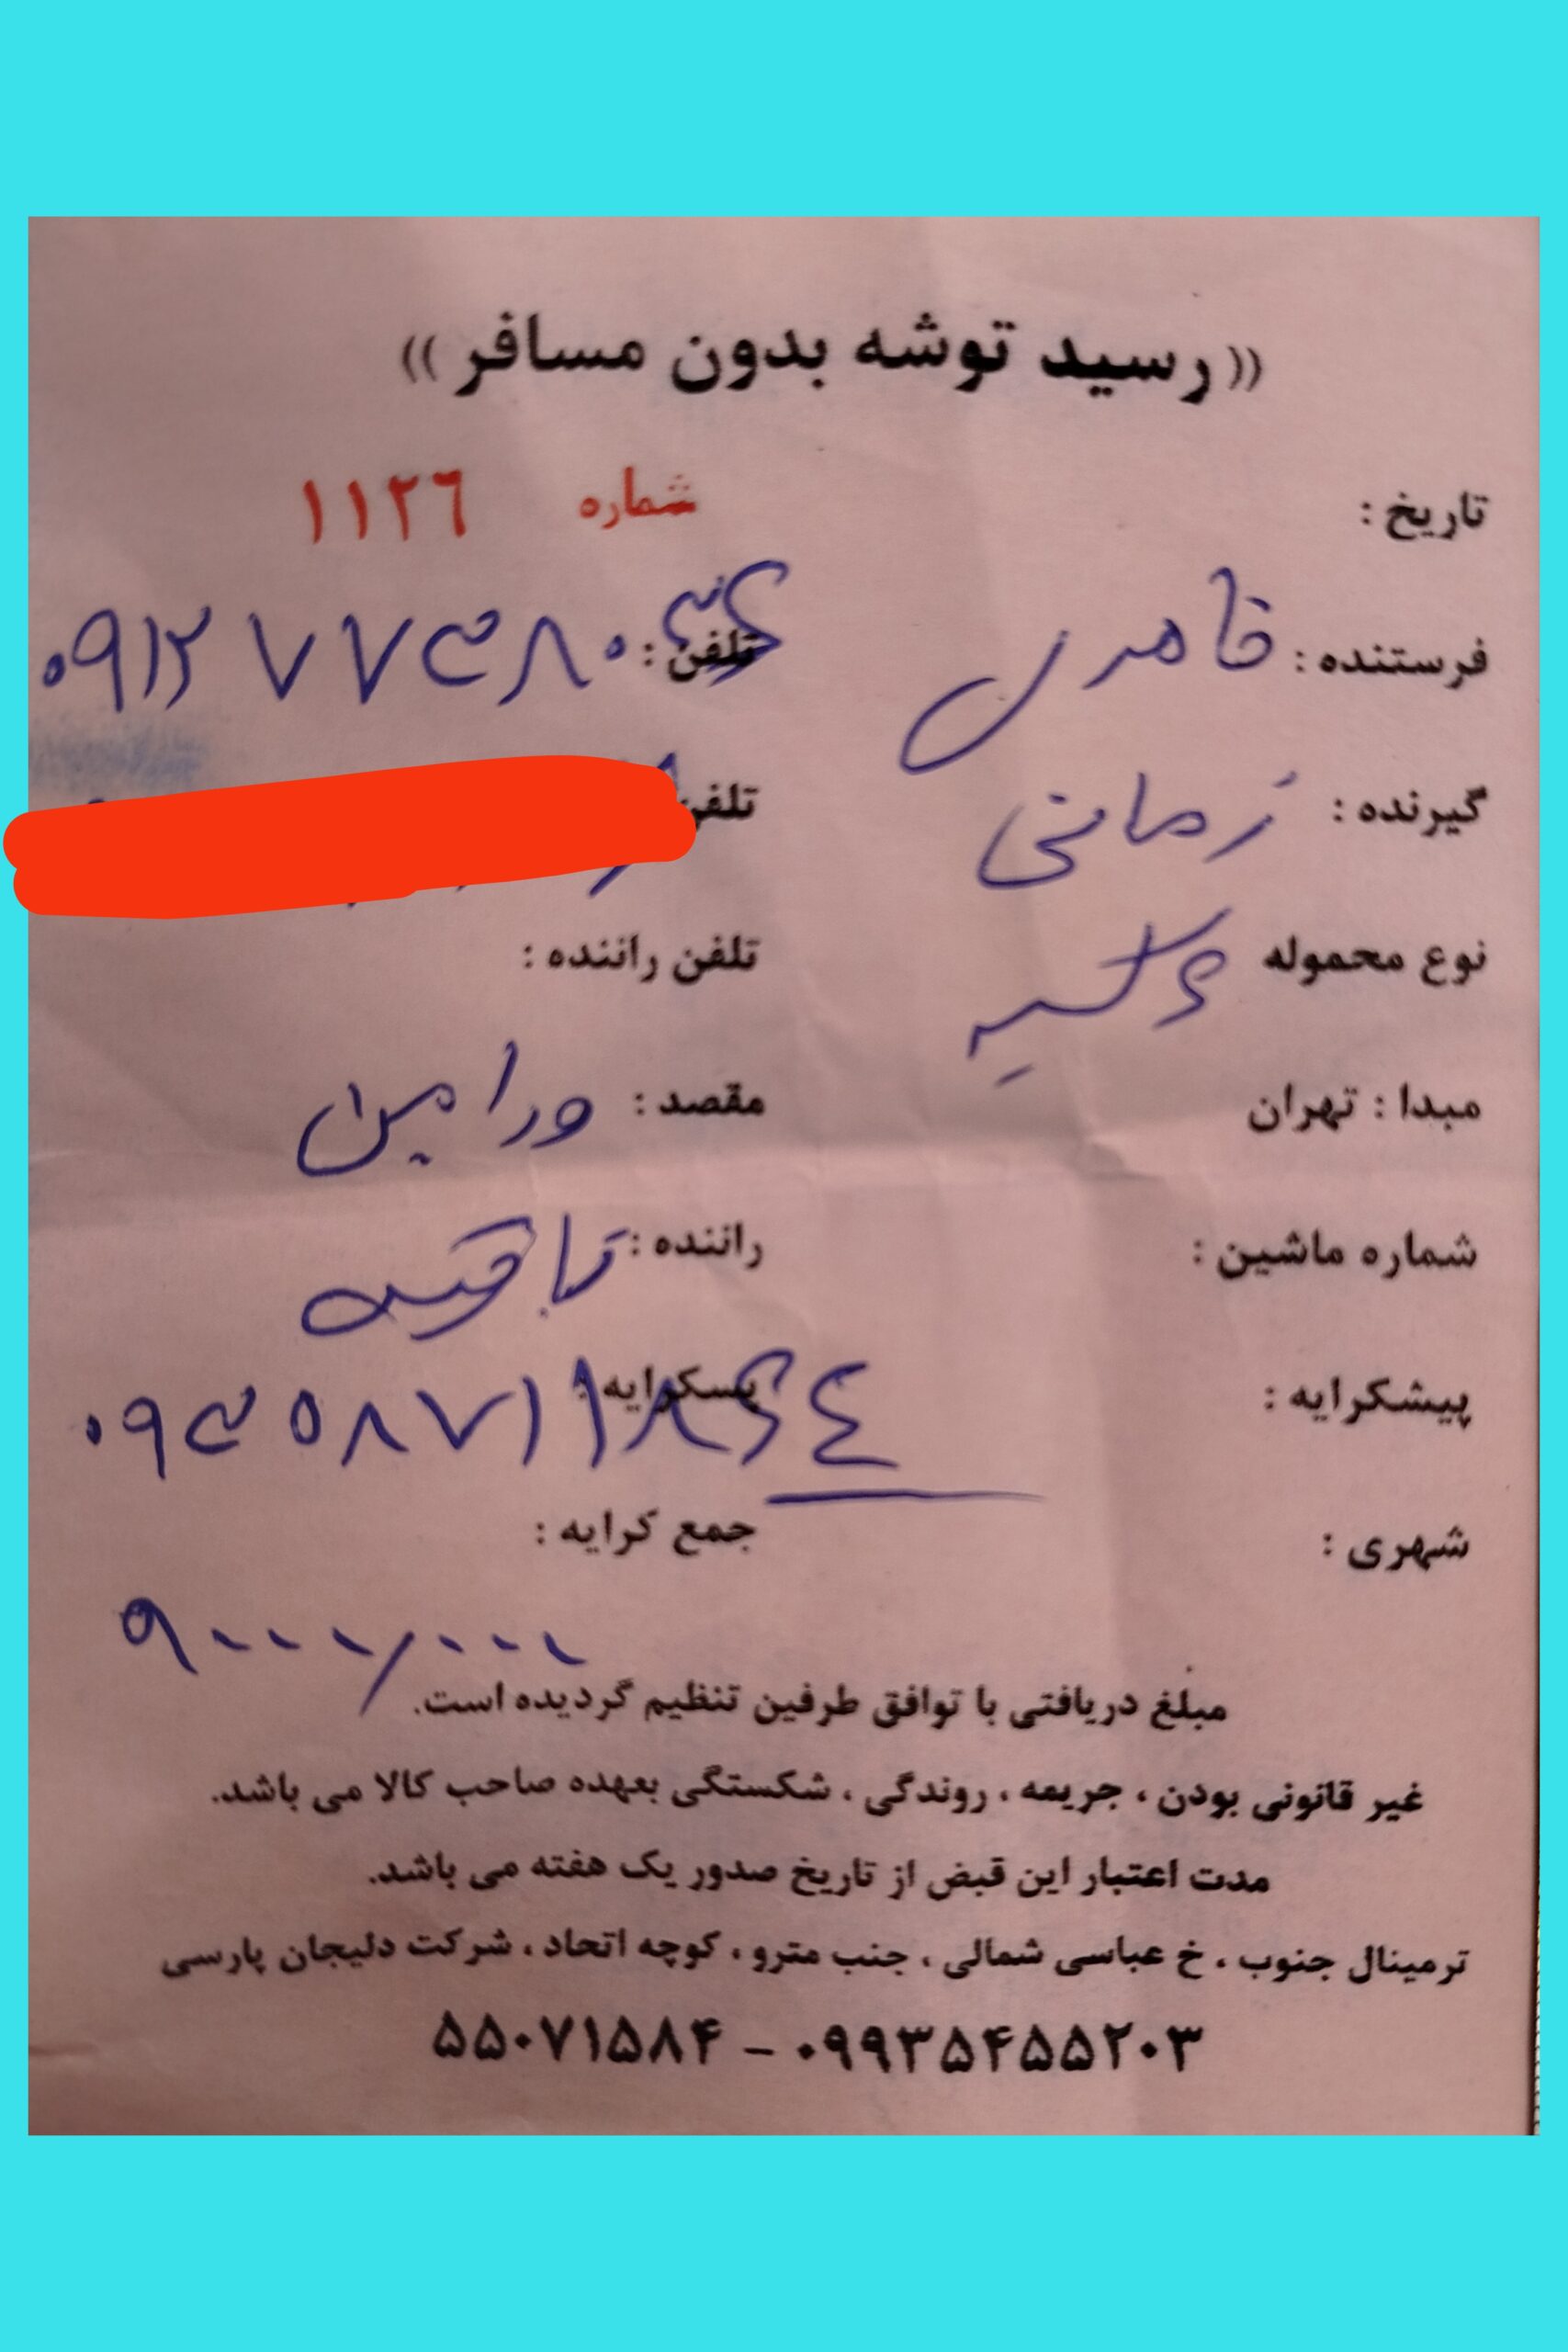 (( رسید توشه بدون مسافر ))
تاریخ : شماره ١١٢٦
فرستنده : تلفن : ۰۹۱۲۷۷۳۸۰۳۶
گیرنده : زمانی تلفن
نوع محموله ۶ کیسه تلفن راننده :
مبدا : تهران مقصد : ورامین
شماره ماشین : راننده :
پیشکرایه : پسکرایه : ۰۹۳۵۸۷۱۱۸۶٤
شهری : جمع کرایه :
۹۰۰۰/۰۰۰
مبلغ دریافتی با توافق طرفین تنظیم گردیده است.
غیر قانونی بودن ، جریمه ، روندگی ، شکستگی بعهده صاحب کالا می باشد.
مدت اعتبار این قبض از تاریخ صدور یک هفته می باشد.
ترمینال جنوب ، خ عباسی شمالی ، جنب مترو ، کوچه اتحاد ، شرکت دلیجان پارسی
۵۵۰۷۱۵۸۴ - ۰۹۹۳۵۴۵۵۲۰۳